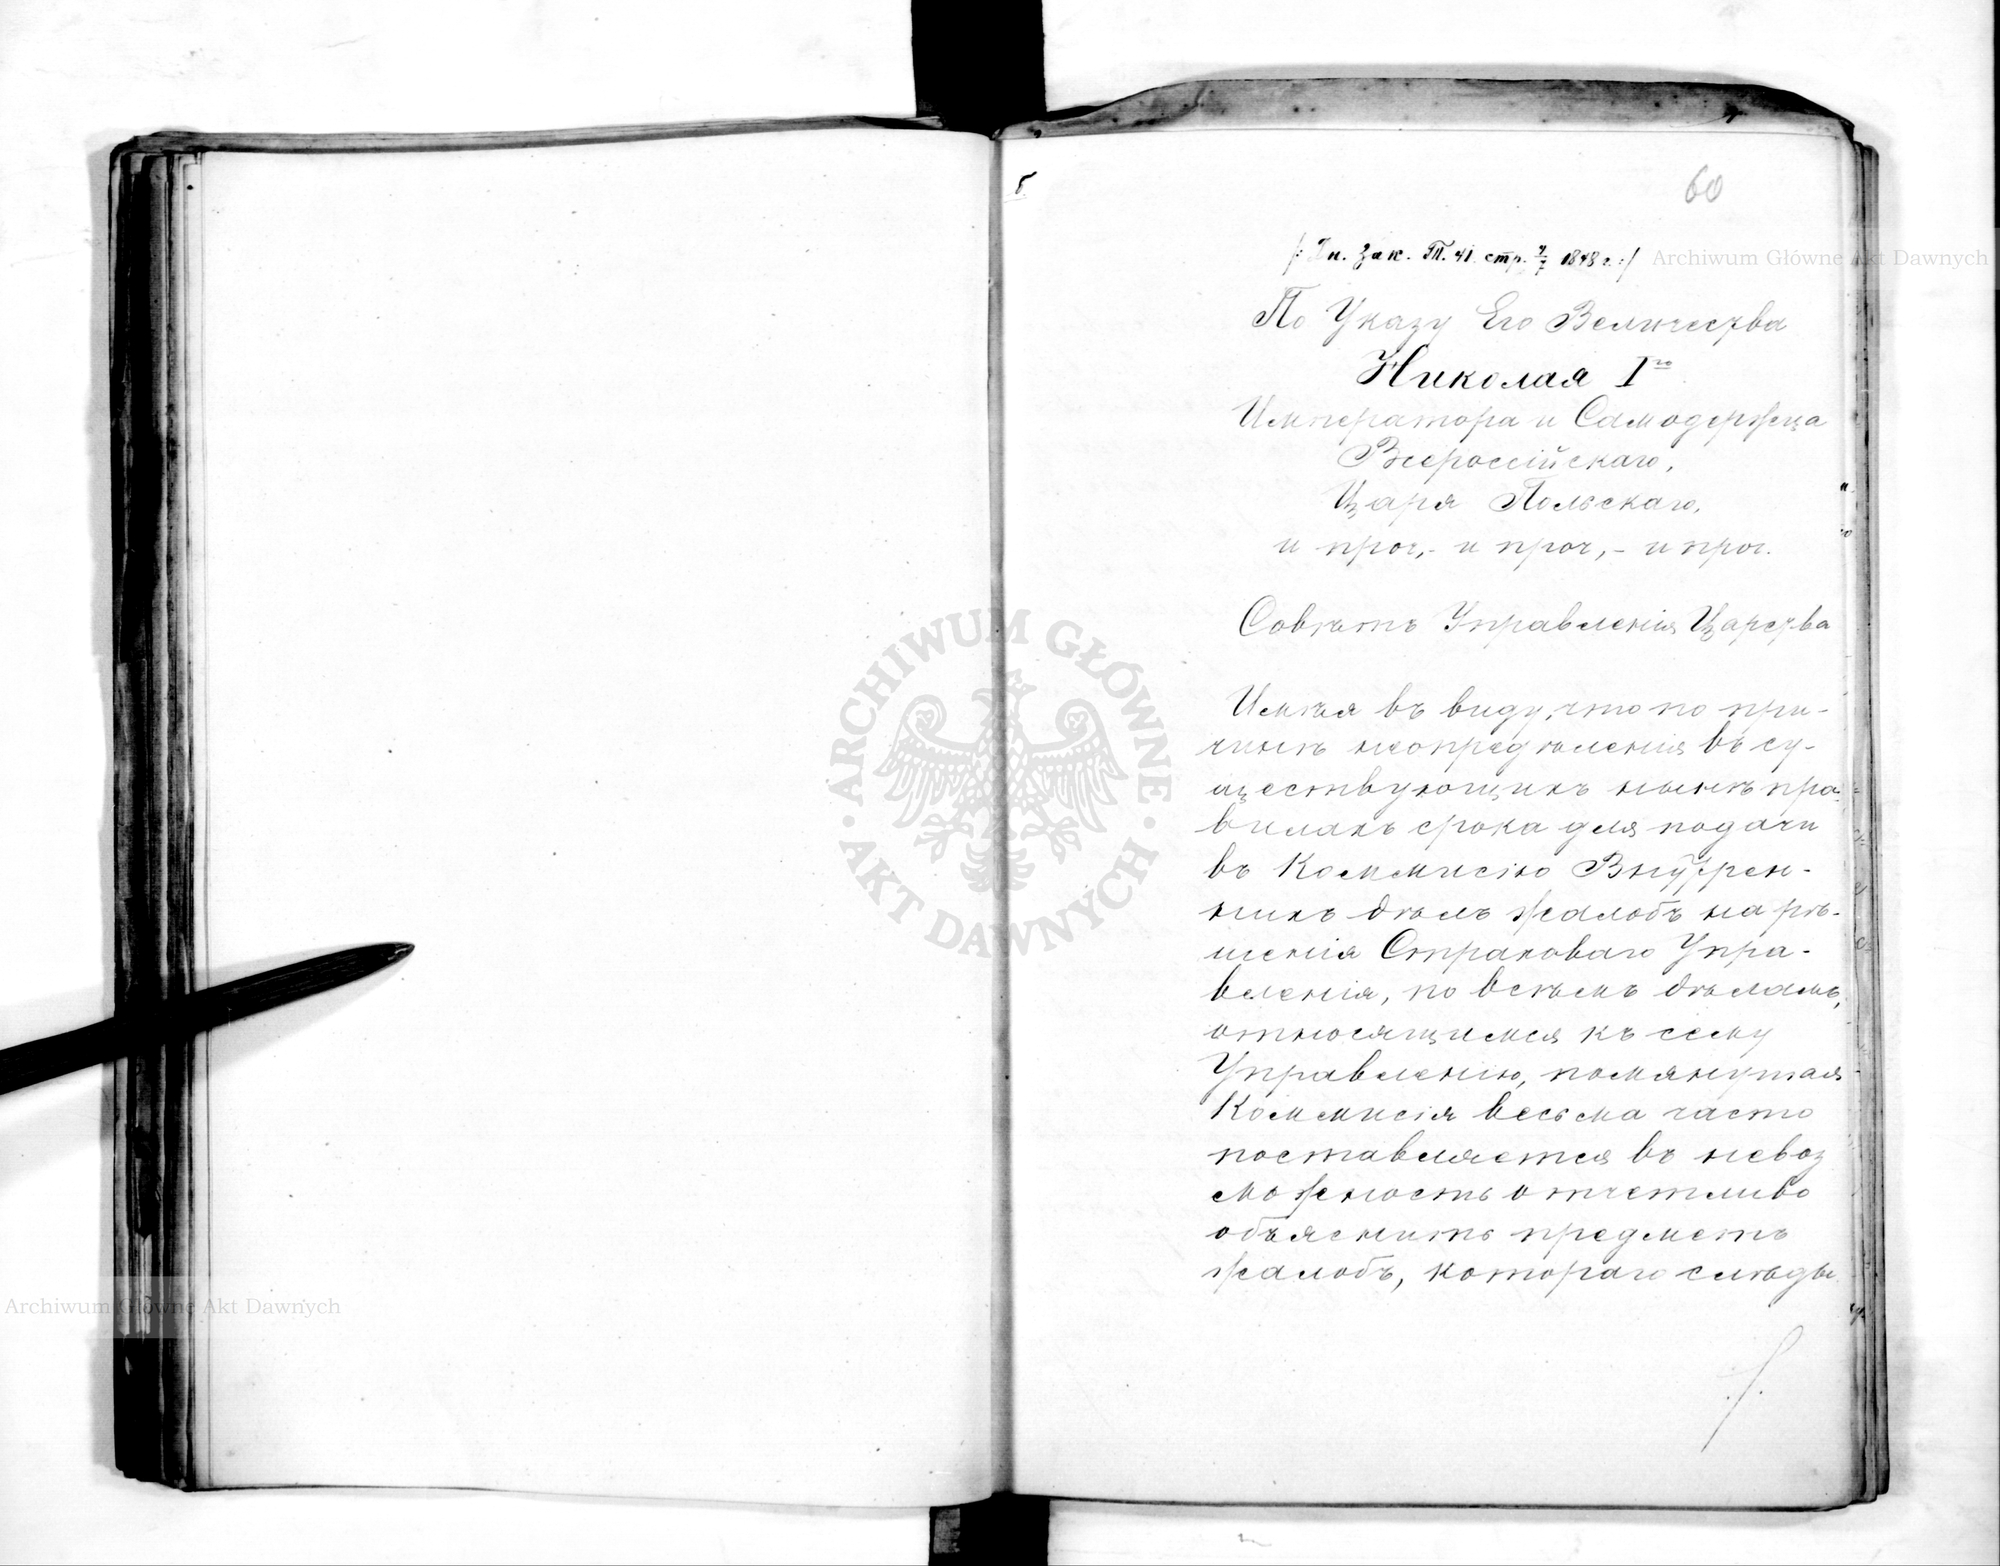 60
/: Дн. Зак. Т. 41. стр. 4/7 1848 г. :/
По Указу Его Величества
Николая Iго
Императора и Самодержца
Всероссійскаго,
Царя Польскаго,
и проч,- и проч,- и проч.
Совѣтъ Управленія Царства
Имѣя въ виду, что по при-
чинѣ неопредѣленія въ су-
ществующихъ нынѣ пра-
вилахъ срока для подачи
въ Коммисію Внутрен-
нихъ дѣлъ жалобъ на рѣ-
шенія Страховаго Упра-
вленія, по всѣмъ дѣламъ,
относящимся къ сему
Управленію, помянутая
Коммисія весьма часто
поставляется въ невоз
можность отчетливо
объяснить предметъ
жалобъ, котораго слѣды
Archiwum Główne Akt Dawnych
ARCHIWUM GŁÓWNE
AKT DAWNYCH
Archiwum Główne Akt Dawnych